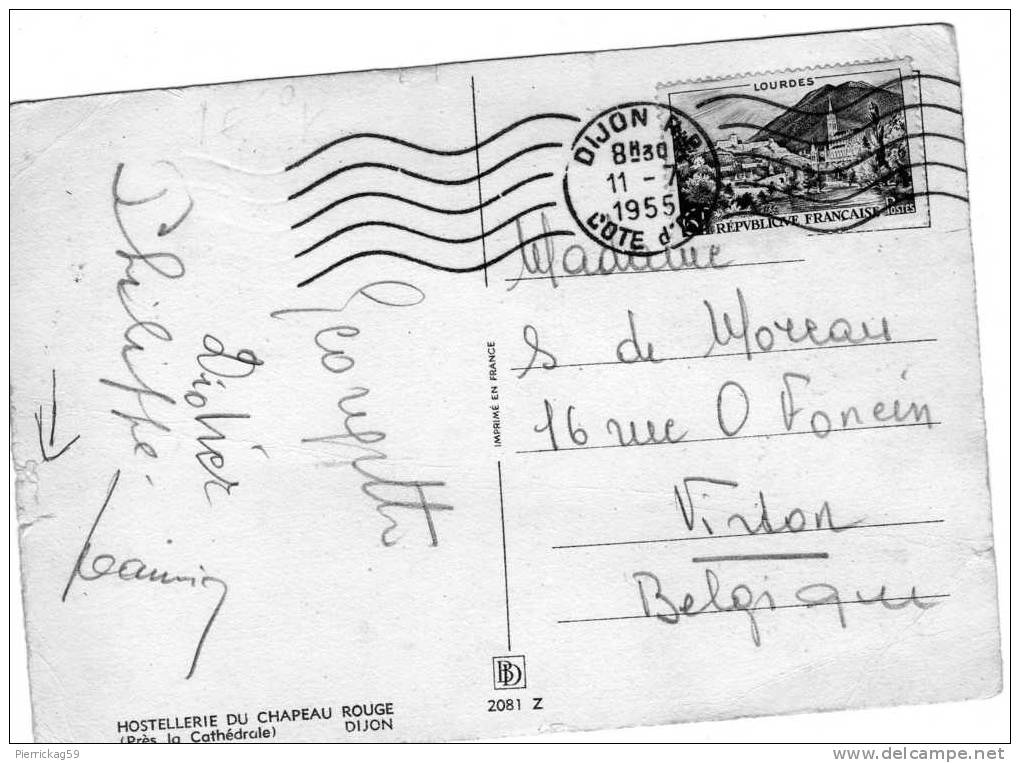 LOURDES
DIJON R.P.
8H30
11 - 7
1955
COTE d'OR
REPVBLIQVE FRANCAISE
POSTES
Madame
S de Moreau
16 rue O Foncin
Virton
Belgique
Philippe
Didier
Georgette
IMPRIMÉ EN FRANCE
BD
2081 Z
HOSTELLERIE DU CHAPEAU ROUGE
(Près la Cathédrale) DIJON
Pierrickag59
www.delcampe.net